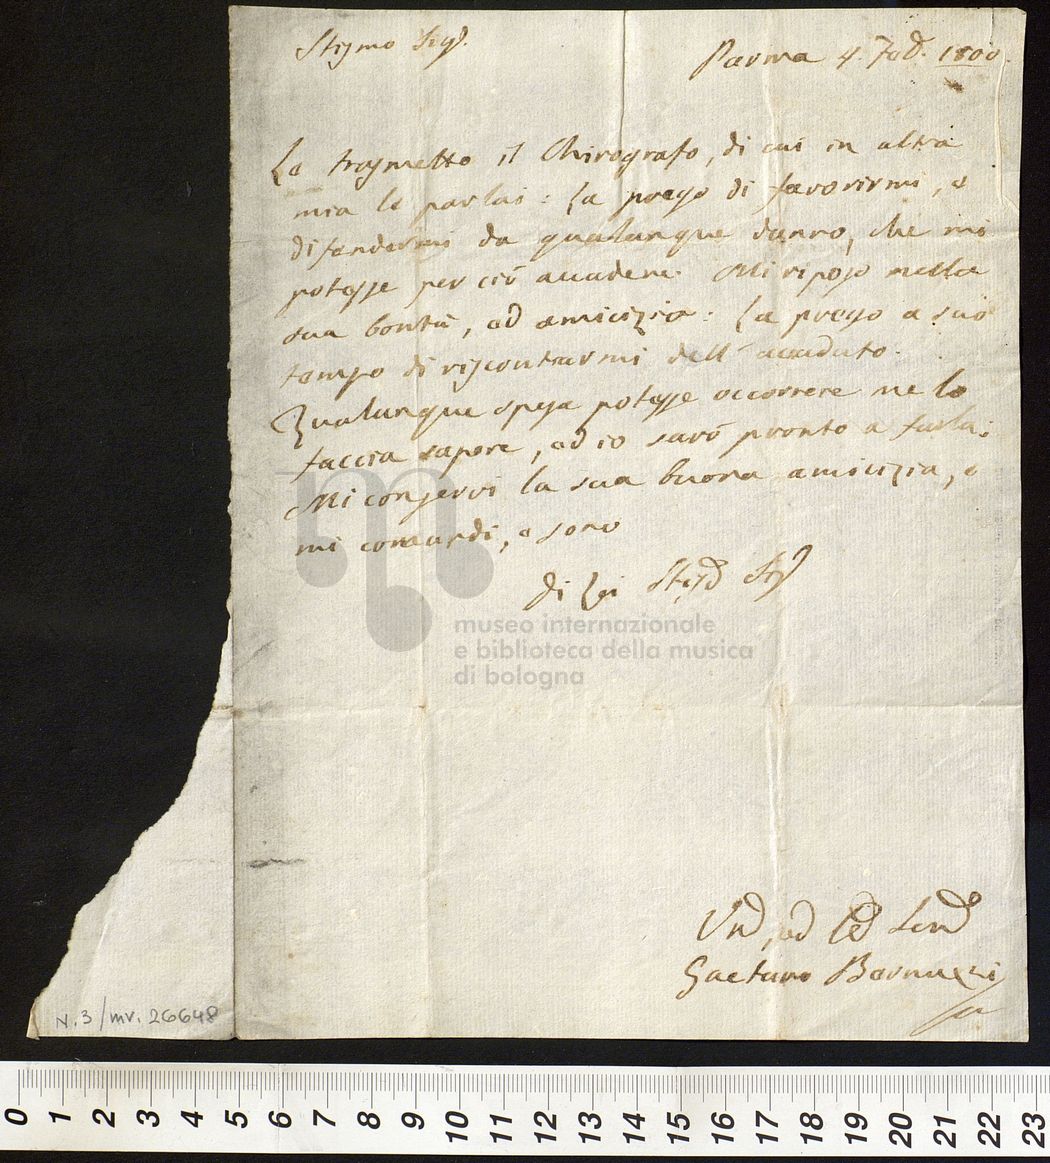 Stimo Sigr.
Parma 4. 1800.
Le trasmetto il Chirografo, di cui in altra
mia le parlai: La prego di favorirmi, e
difendermi da qualunque danno, che mi
potesse per ciò accadere. Mi riposo nella
sua bontà, ed amicizia: La prego a suo
tempo di riscontrarmi dell'accaduto.
Qualunque spesa potesse occorrere me lo
faccia sapere, ed io sarò pronto a farla.
Mi conservi la sua buona amicizia, e
mi comandi, e sono
di Lei
museo internazionale
e biblioteca della musica
di bologna
ed
Gaetano
N. 3 / mv. 26648
0 1 2 3 4 5 6 7 8 9 10 11 12 13 14 15 16 17 18 19 20 21 22 23